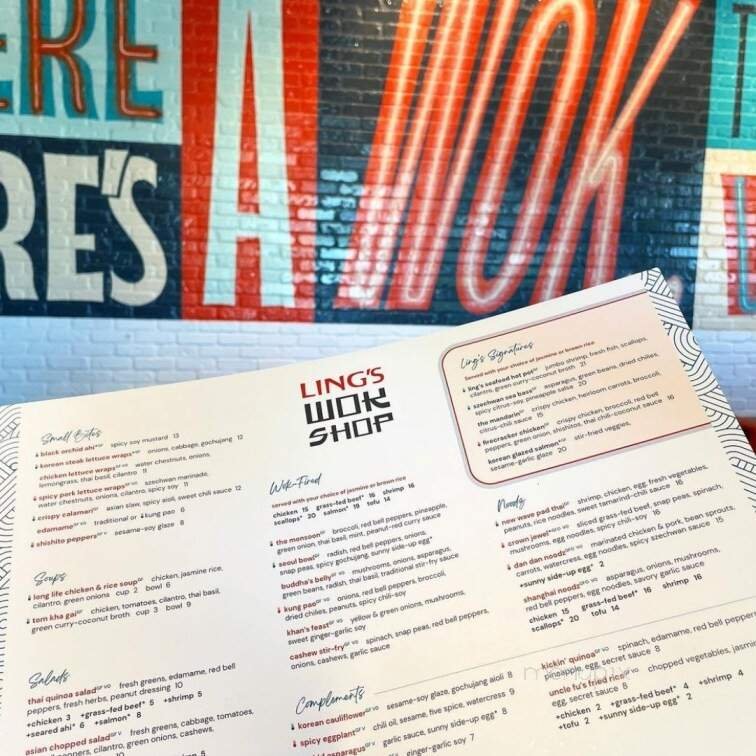 ERE
RE'S
A
WOK
LING'S
WOK
SHOP
Small Bites
black orchid ahi*GF spicy soy mustard 13
korean steak lettuce wraps*GF onions, cabbage, gochujang 12
chicken lettuce wrapsGF VO water chestnuts, onions,
lemongrass, thai basil, cilantro 11
spicy pork lettuce wrapsGF VO szechwan marinade,
water chestnuts, onions, cilantro, spicy soy 11
crispy calamariGF asian slaw, spicy aioli, sweet chili sauce 12
edamameGF VO traditional or kung pao 6
shishito peppersGF V sesame-soy glaze 8
Soups
long life chicken & rice soupGF chicken, jasmine rice,
cilantro, green onions cup 2 bowl 6
tom kha gaiGF chicken, tomatoes, cilantro, thai basil,
green curry-coconut broth cup 3 bowl 9
Salads
thai quinoa saladGF VO fresh greens, edamame, red bell
peppers, fresh herbs, peanut dressing 10
+chicken 3 +grass-fed beef* 5 +shrimp 5
+seared ahi* 6 +salmon* 8
asian chopped saladGF VO fresh greens, cabbage, tomatoes,
carrots, edamame, cilantro, green onions, cashews,
Wok-Fired
served with your choice of jasmine or brown rice
chicken 15 grass-fed beef* 16 shrimp 16
scallops* 20 salmon* 19 tofu 14
the monsoonGF broccoli, red bell peppers, pineapple,
green onion, thai basil, mint, peanut-red curry sauce
seoul bowlGF radish, red bell peppers, onions,
snap peas, spicy gochujang, sunny side-up egg*
buddha's bellyGF VO mushrooms, onions, asparagus,
green beans, radish, thai basil, traditional stir-fry sauce
kung paoGF VO onions, red bell peppers, broccoli,
dried chilies, peanuts, spicy chili-soy
khan's feastGF VO yellow & green onions, mushrooms,
sweet ginger-garlic soy
cashew stir-fryGF VO spinach, snap peas, red bell peppers,
onions, cashews, garlic sauce
Complements
korean cauliflowerGF V sesame-soy glaze, gochujang aioli 8
spicy eggplantGF V chili oil, sesame, five spice, watercress 9
asparagusGF V garlic sauce, sunny side-up egg* 8
ginger-garlic soy 7
Ling's Signatures
Served with your choice of jasmine or brown rice
ling's seafood hot potGF jumbo shrimp, fresh fish, scallops,
cilantro, green curry-coconut broth 21
szechwan sea bassGF asparagus, green beans, dried chilies,
spicy citrus-soy, pineapple salsa 20
the mandarinGF crispy chicken, heirloom carrots, broccoli,
citrus-chili sauce 15
firecracker chickenGF crispy chicken, broccoli, red bell
peppers, green onion, shishitos, thai chili-coconut sauce 16
korean glazed salmon*GF stir-fried veggies,
sesame-garlic glaze 20
Noods
new wave pad thaiGF shrimp, chicken, egg, fresh vegetables,
peanuts, rice noodles, sweet tamarind-chili sauce 16
crown jewel*GFO VO sliced grass-fed beef, snap peas, spinach,
mushrooms, egg noodles, spicy chili-soy 16
dan dan noodzGFO VO marinated chicken & pork, bean sprouts,
carrots, watercress, egg noodles, spicy szechwan sauce 15
+sunny side-up egg* 2
shanghai noodzGFO VO asparagus, onions, mushrooms,
red bell peppers, egg noodles, savory garlic sauce
chicken 15 grass-fed beef* 16 shrimp 16
scallops* 20 tofu 14
kickin' quinoaGF VO spinach, edamame, red bell peppers
pineapple, egg, secret sauce 8
uncle fu's fried riceGF VO chopped vegetables, jasmine
egg, secret sauce 8
+chicken 2 +grass-fed beef* 4 +shrimp 4
+tofu 2 +sunny side-up egg* 2